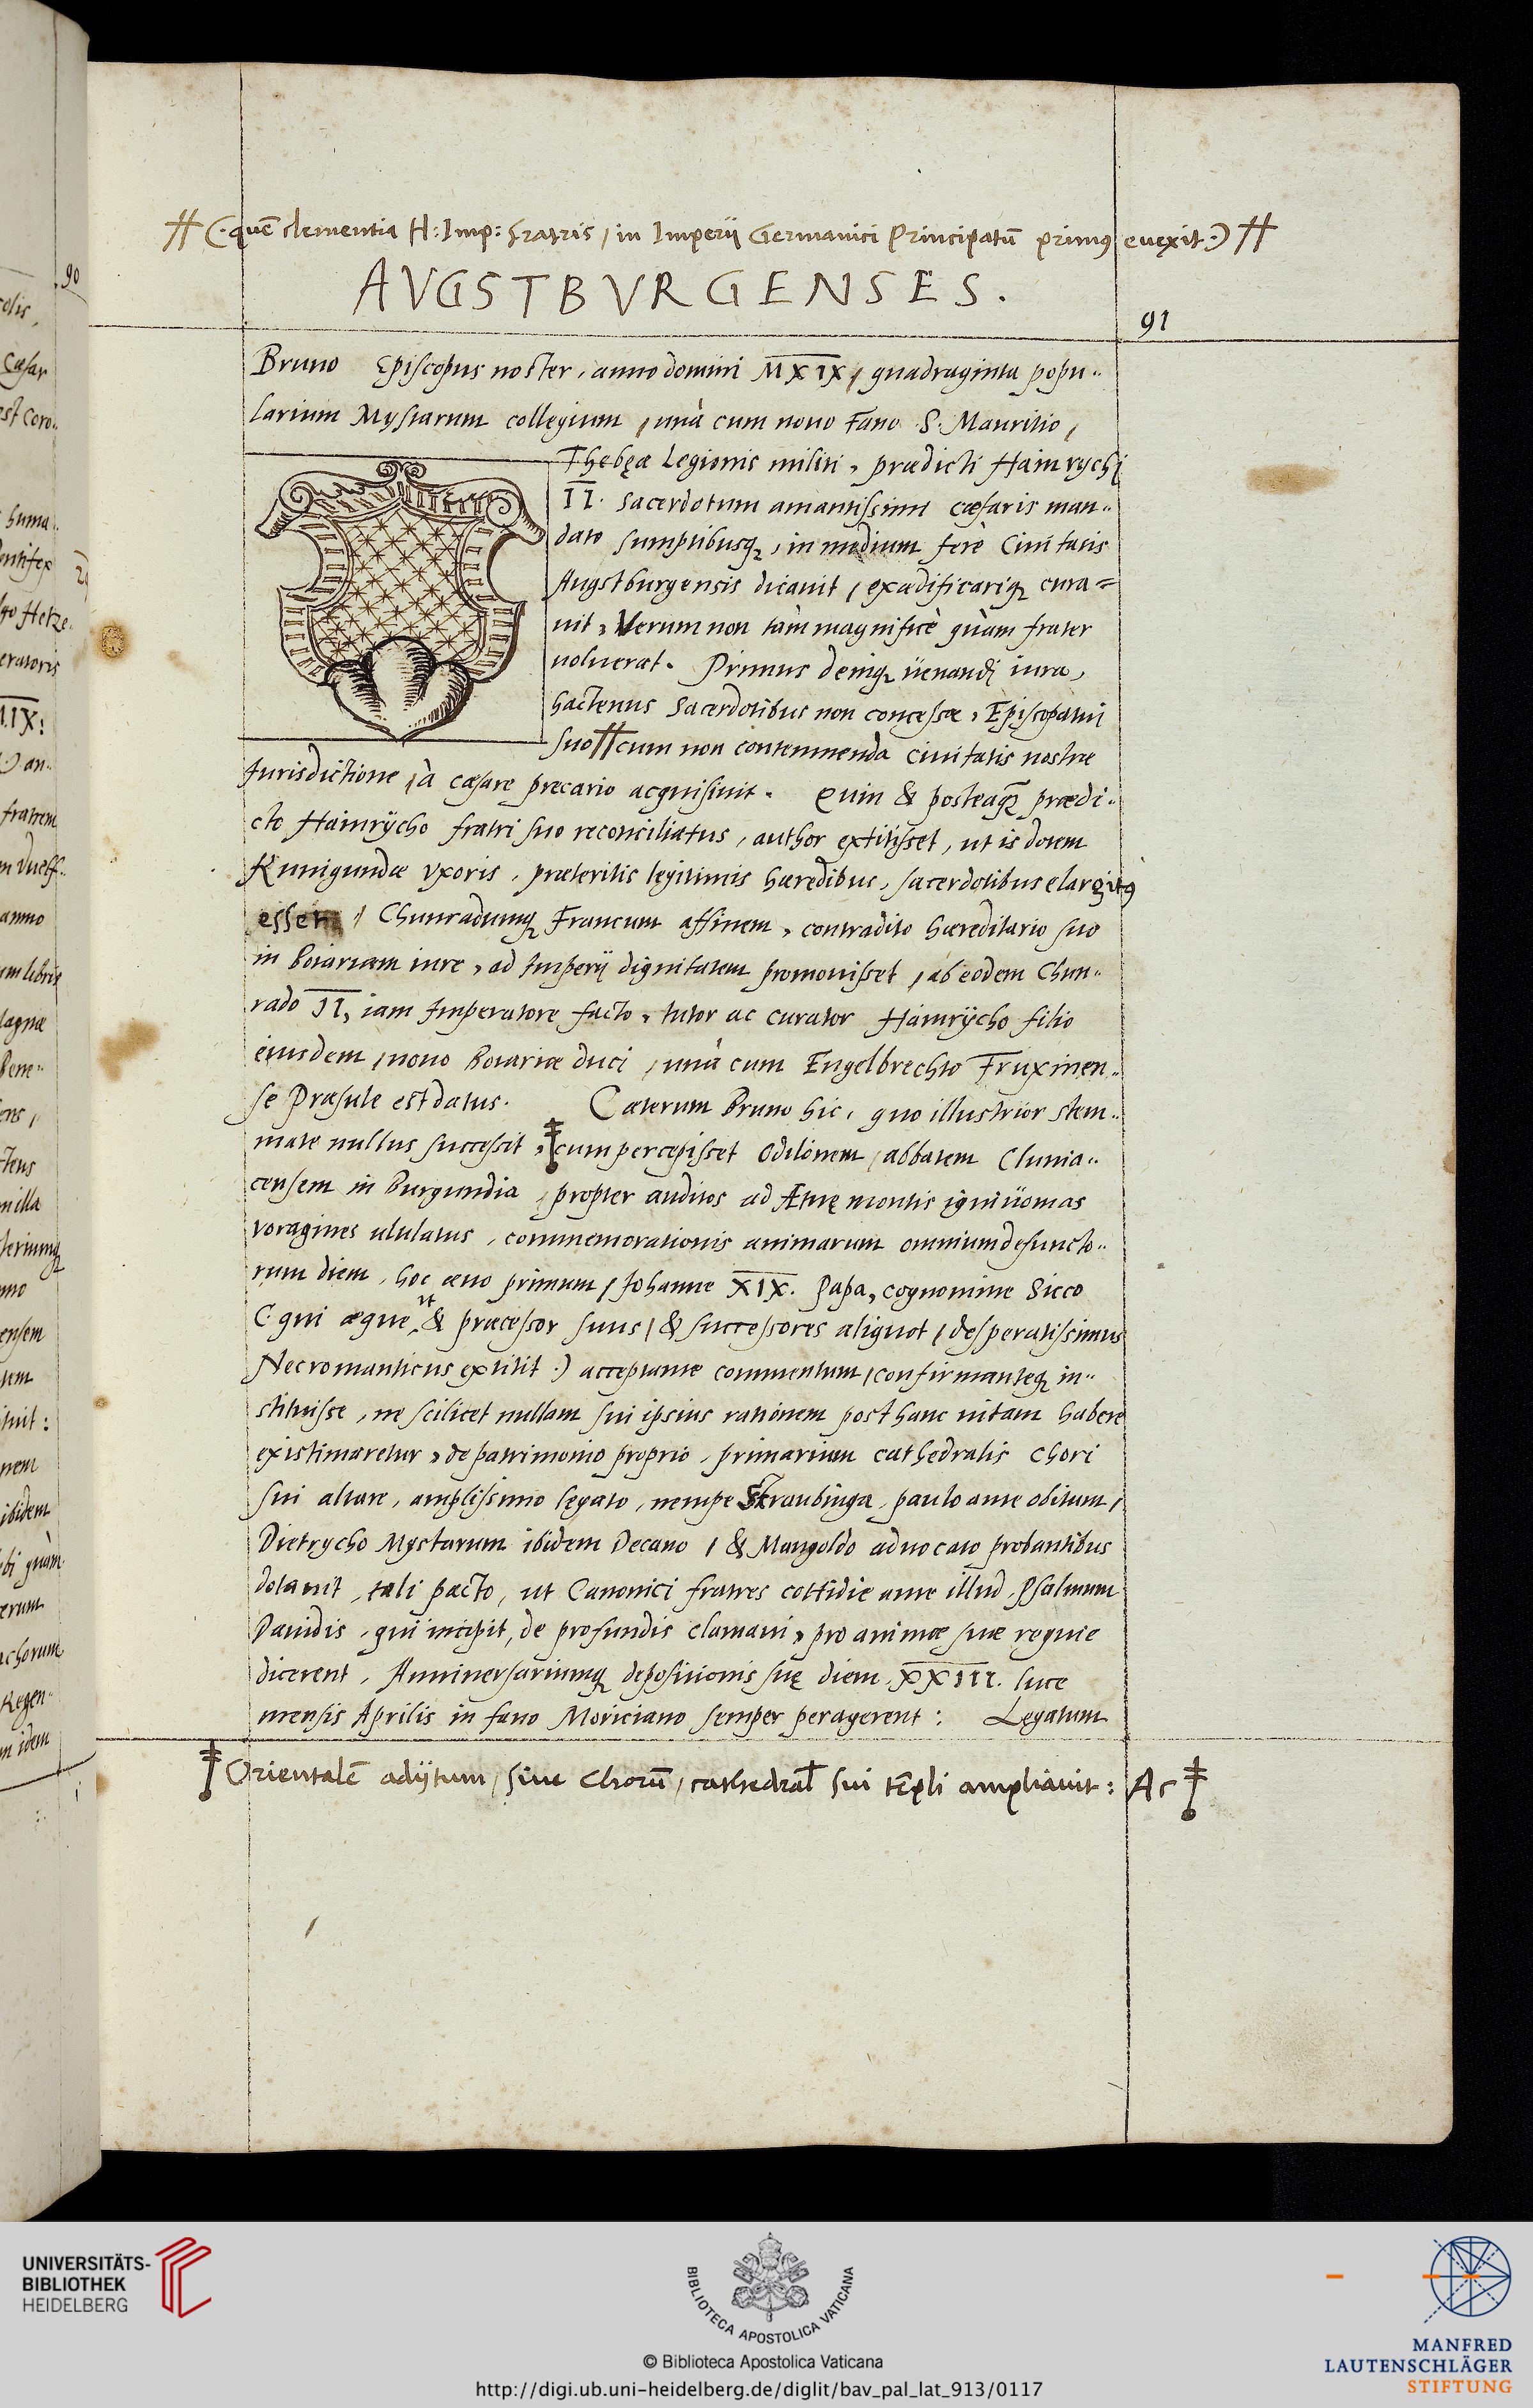 ╫ (·quē clementia H: Imp: fratris / in Imperii Germanici Principatū primus euexit·) ╫
AVGSTBVRGENSES.
91
Bruno Episcopus noster, anno domini MXIX, quadraginta popu„
larium Mystarum collegium, unà cum nouo Fano S. Mauritio,
Thebęæ Legionis militi, prædicti Hainrychi
II. sacerdotum amantissimi cæsaris man„
dato sumptibusq;, in medium ferè Ciuitatis
Augstburgensis dicauit, exædificariq; cura=
uit, Verum non tàm magnificè quàm frater
uoluerat. Primus deniq; uenandi iura,
hactenus Sacerdotibus non concessa, Episcopatui
suo ╫ cum non contemnenda Ciuitatis nostræ
Iurisdictione, à cæsare precario acquisiuit. Quin & posteaq̃; prædi„
cto Hainrycho fratri suo reconciliatus, author extitisset, ut is dotem
Kunigundæ uxoris, præteritis legitimis hæredibus, sacerdotibus elargitus
esset, Chunradumq; Francum affinem, contradito hæreditario suo
in Boiariam iure, ad Imperij dignitatem promouisset, ab eodem Chun„
rado II, iam Imperatore facto, tutor ac curator Hainrycho filio
eiusdem, nouo Boiariæ duci, unà cum Engelbrechto Fruxinen„
se Præsule est datus. Cæterum Bruno hic, quo illustrior stem„
mate nullus successit, ‡ cum percepisset Odilonem, abbatem Clunia„
censem in Burgundia, propter auditos ad Ætnę montis igniuomas
voragines ululatus, commemorationis animarum omnium defuncto„
rum diem, hoc æuo primum, Iohanne XIX. Papa, cognomine Sicco
(· qui æque, ut & præcessor suus, & successores aliquot, desperatissimus
Necromanticus extitit ·) acceptante commentum, confirmanteq; in„
stituisse, ne scilicet nullam sui ipsius rationem post hanc uitam habere
existimaretur, de patrimonio proprio, primarium cathedralis Chori
sui altare, amplissimo legato, nempe Straubinga, paulo ante obitum,
Dietrycho Mystarum ibidem Decano, & Mangoldo aduocato probantibus
dotauit, tali pacto, ut Canonici fratres cottidie ante illud, Psalmum
Dauidis, qui incipit, de profundis clamaui, pro animæ suæ requie
dicerent, Anniuersariumq; depositionis suę diem, XXIII. luce
mensis Aprilis in fano Moriciano semper peragerent: Legatum
‡ Orientalē adijtum, siue Chorū, cathedral̄ sui tēpli ampliauit: Ac ‡
UNIVERSITÄTS-
BIBLIOTHEK
HEIDELBERG
BIBLIOTECA APOSTOLICA VATICANA
© Biblioteca Apostolica Vaticana
http://digi.ub.uni-heidelberg.de/diglit/bav_pal_lat_913/0117
MANFRED
LAUTENSCHLÄGER
STIFTUNG